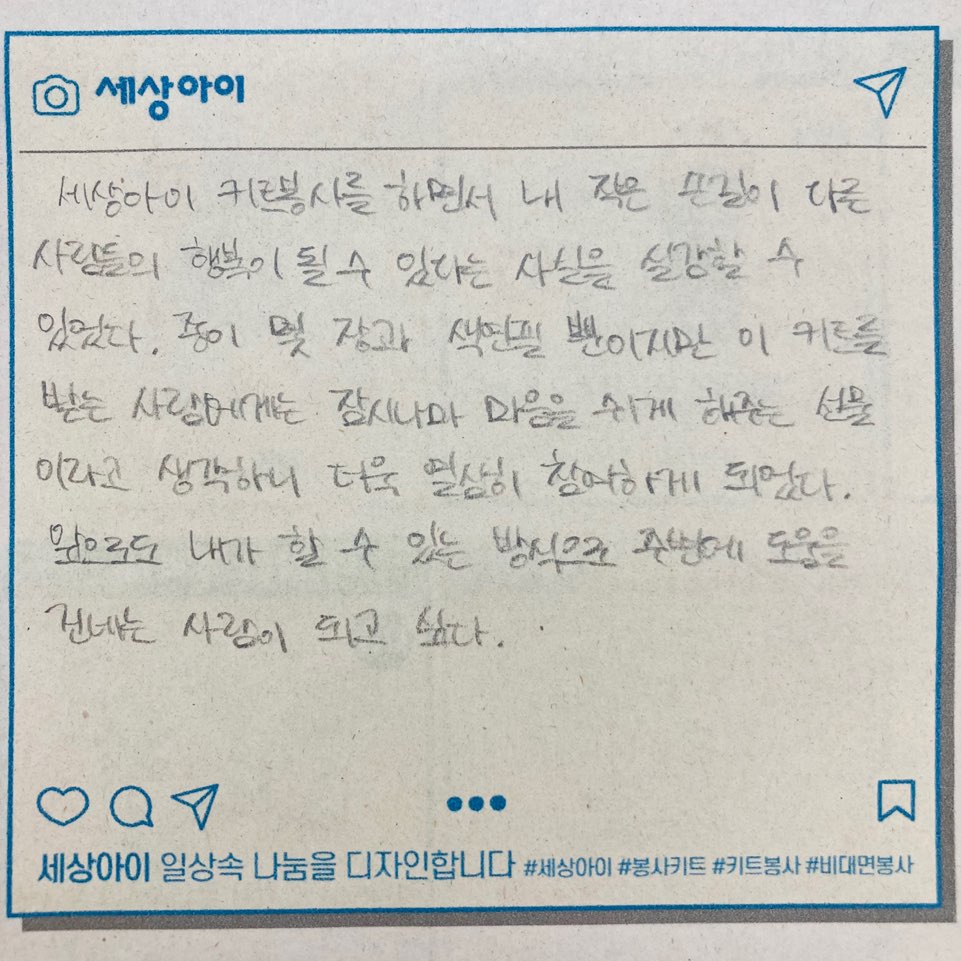 세상아이
세상아이 키트봉사를 하면서 내 작은 손길이 다른
사람들의 행복이 될 수 있다는 사실을 실감할 수
있었다. 종이 몇 장과 색연필 뿐이지만 이 키트를
받는 사람에게는 잠시나마 마음을 쉬게 해주는 선물
이라고 생각하니 더욱 열심히 참여하게 되었다.
앞으로도 내가 할 수 있는 방식으로 주변에 도움을
건네는 사람이 되고 싶다.
세상아이 일상속 나눔을 디자인합니다 #세상아이 #봉사키트 #키트봉사 #비대면봉사